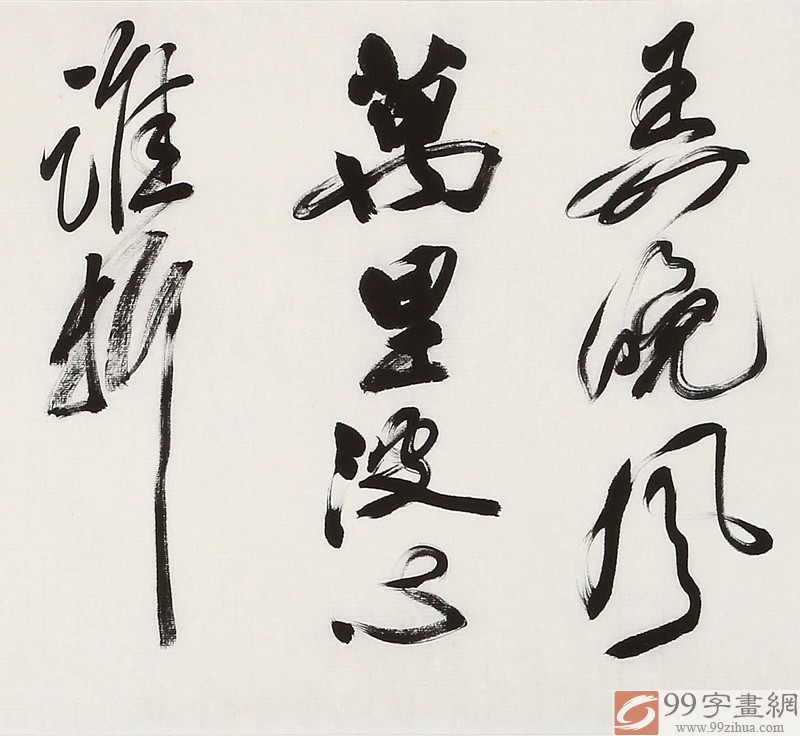 弄晚風
萬里波心
誰折
99字畫網
www.99zihua.com